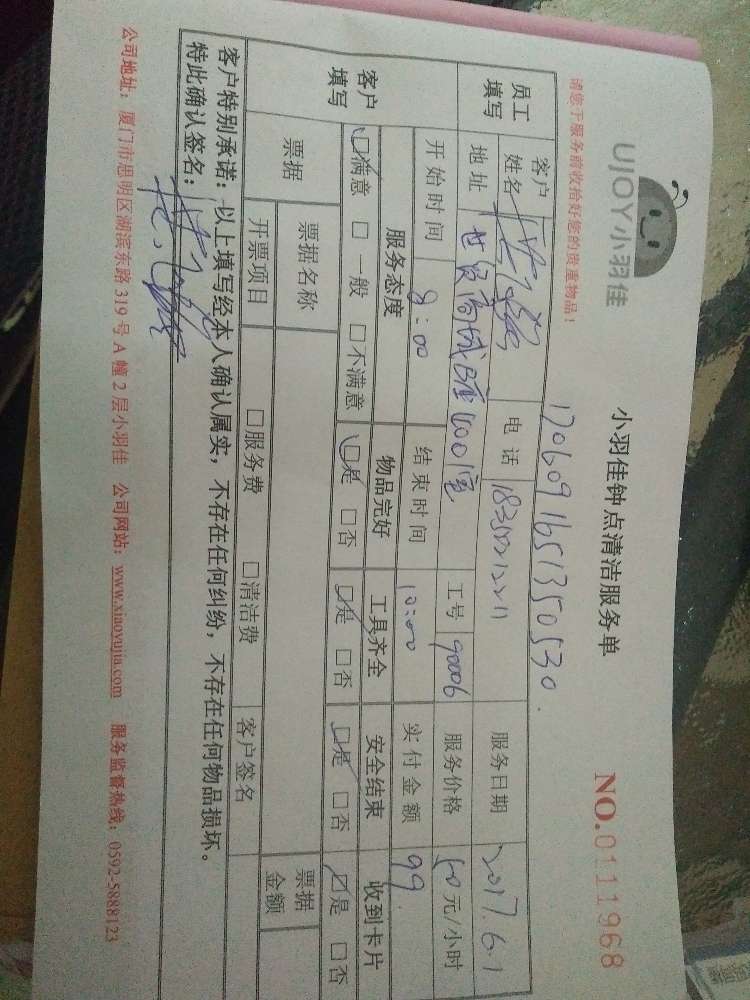 UJOY小羽佳
小羽佳钟点清洁服务单
NO.0111968
请您于服务前收拾好您的贵重物品！
1706091651350530.
员工填写
客户姓名
电话
服务日期 2017.6.1
地址 世贸商城B座1001室
工号 90006
服务价格 50元/小时
开始时间 8:00
结束时间 10:00
实付金额 99
客户填写
服务态度 物品完好 工具齐全 安全结束 收到卡片
☑满意 □一般 □不满意 ☑是 □否 ☑是 □否 ☑是 □否 ☑是 □否
票据
票据名称
票据金额
开票项目 □服务费 □清洁费 客户签名
客户特别承诺：以上填写经本人确认属实，不存在任何纠纷，不存在任何物品损坏。
特此确认签名：
公司地址：厦门市思明区湖滨东路319号A幢2层小羽佳 公司网站：www.xiaoyujia.com 服务监督热线：0592-5888123